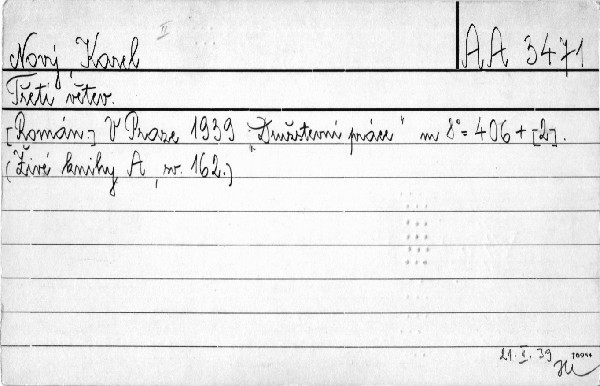 II
Nový Karel
AA 3471
Třetí větev.
[Román.] V Praze 1939 „Družstevní práce“ m 8°= 406 + [2].
(Živé knihy A, sv. 162.)
21. X. 39